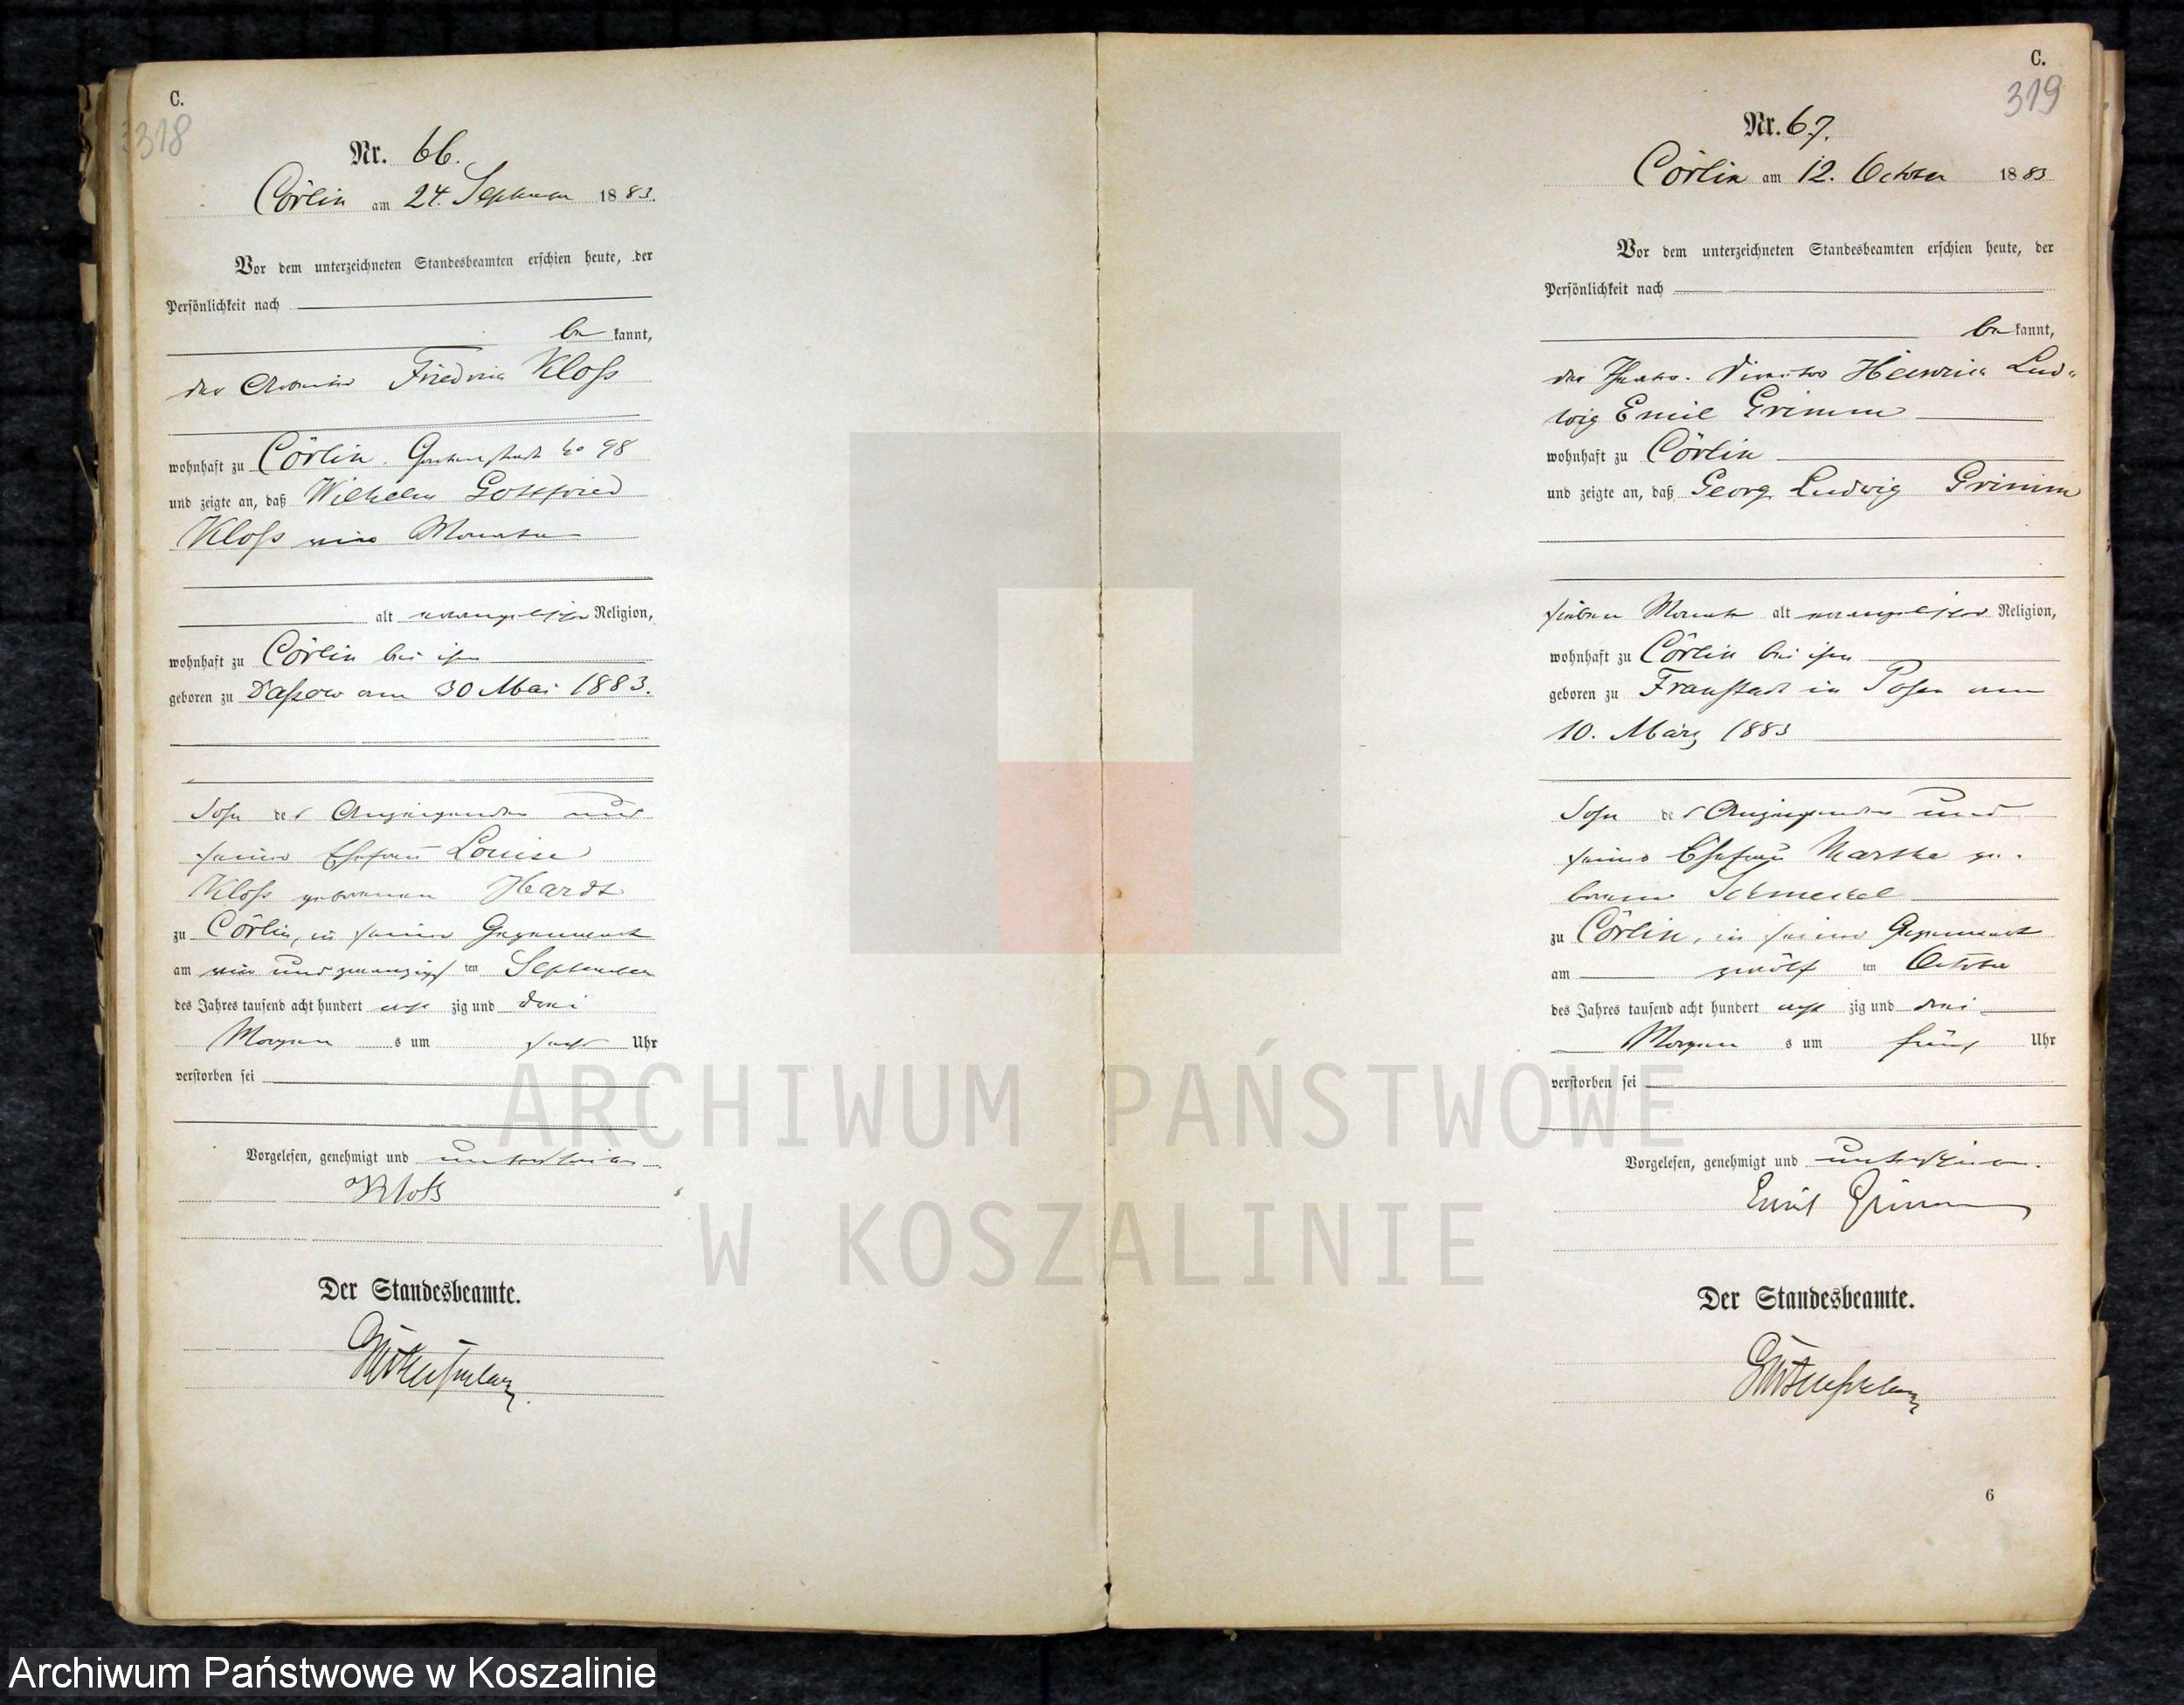 C.
318
Nr. 66.
Cörlin am 24. September 1883.
Vor dem unterzeichneten Standesbeamten erschien heute, der
Persönlichkeit nach
be kannt,
der Arbeiter Friedrich Kloss
wohnhaft zu Cörlin. Gartenstadt No 98
und zeigte an, daß Wilhelm Gottfried
Kloss vier Monate
alt evangelischer Religion,
wohnhaft zu Cörlin bei ihm
geboren zu Dassow am 30 Mai 1883.
Sohn des Anzeigenden und
seiner Ehefrau Louise
Kloss geborenen Hardt
zu Cörlin, in seiner Gegenwart
am vier und zwanzigs ten September
des Jahres tausend acht hundert acht zig und drei
Morgen s um sechs Uhr
verstorben sei
Vorgelesen, genehmigt und unterschrieben
Kloß
Der Standesbeamte.
C.
319
Nr. 67.
Cörlin am 12. October 1883
Vor dem unterzeichneten Standesbeamten erschien heute, der
Persönlichkeit nach
be kannt,
der Theater-Director Heinrich Lud-
wig Emil Grimm
wohnhaft zu Cörlin
und zeigte an, daß Georg Ludwig Grimm
sieben Monate alt evangelischer Religion,
wohnhaft zu Cörlin bei ihm
geboren zu Fraustadt in Posen am
10. März 1883
Sohn des Anzeigenden und
seiner Ehefrau Martha ge-
borene Schmeckel
zu Cörlin, in seiner Gegenwart
am zwölf ten October
des Jahres tausend acht hundert acht zig und drei
Morgen s um fünf Uhr
verstorben sei
Vorgelesen, genehmigt und unterschrieben.
Emil Grimm
Der Standesbeamte.
6
ARCHIWUM PAŃSTWOWE
W KOSZALINIE
Archiwum Państwowe w Koszalinie